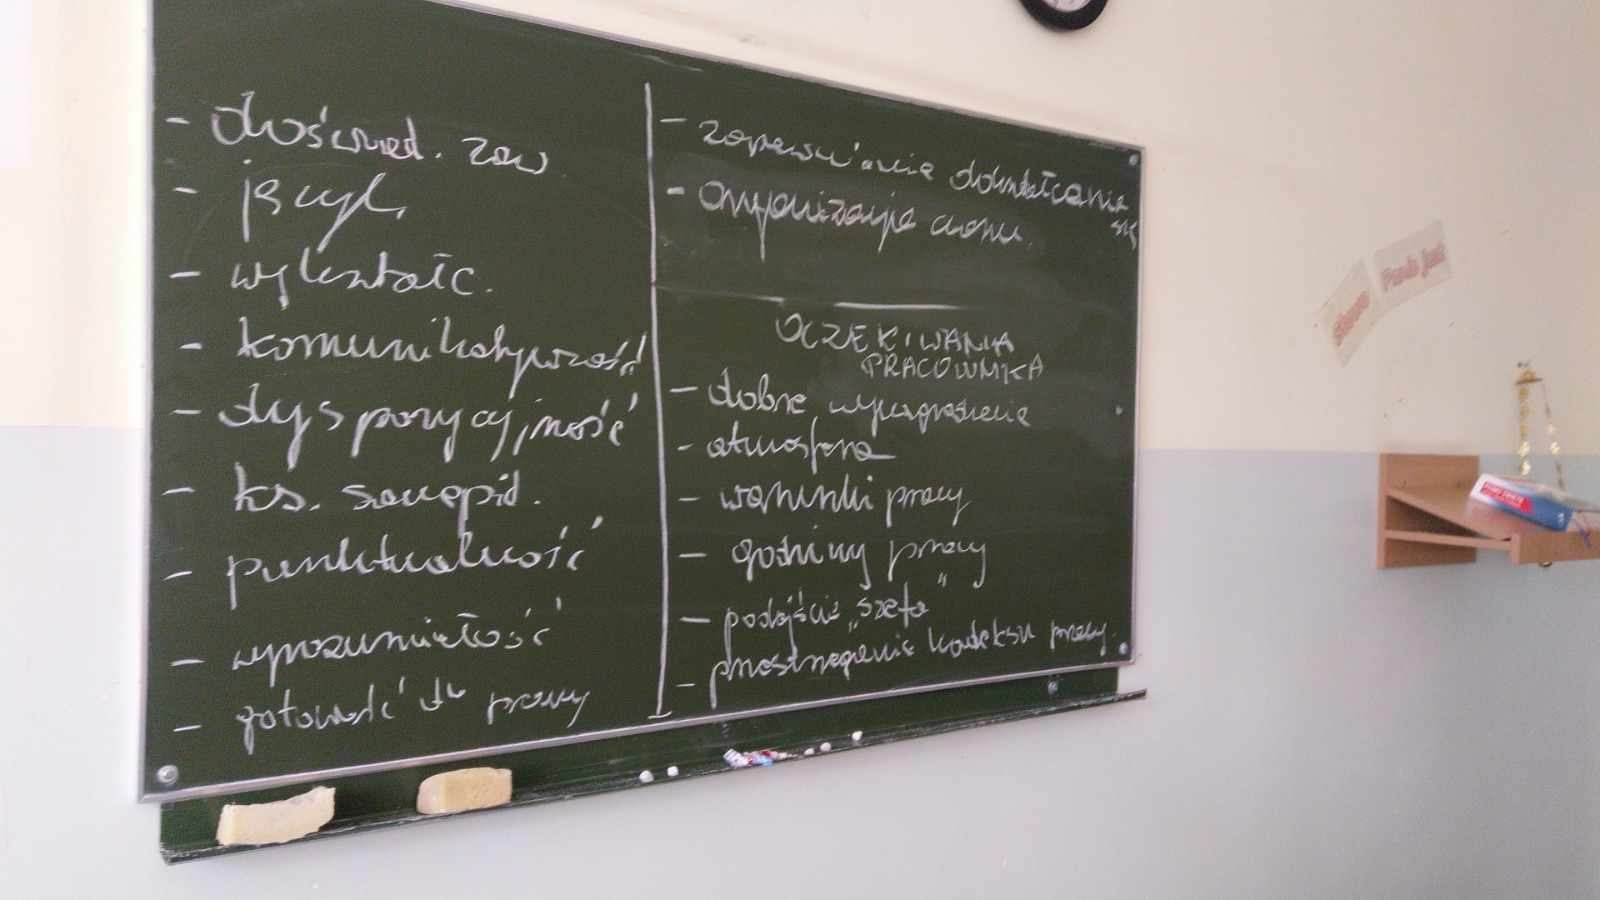 - doświad. zaw
- język
- wykształc.
- komunikatywność
- dyspozycyjność
- ks. sanepid.
- punktualność
- wyrozumiałość
- gotowość do pracy
- zapewnianie dokształcania
się
- organizacja czasu
OCZEKIWANIA
PRACOWNIKA
- dobre wynagrodzenie
- atmosfera
- warunki pracy
- godziny pracy
- podejście „szefa”
- przestrzeganie kodeksu pracy.
Słowo